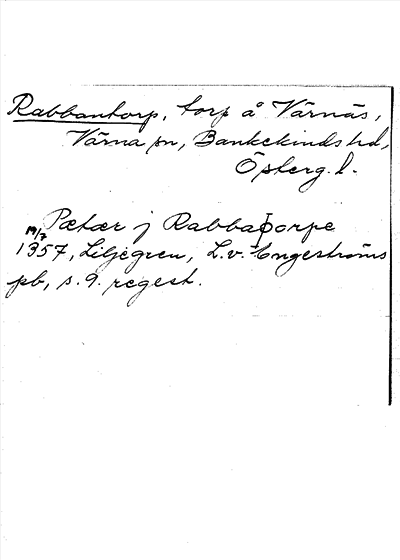 Rabbantorp, torp å Värnäs,
Värna sn, Bankekinds hd,
Österg. l.
Pætær j Rabbaþorpe
19/7 1357, Liljegren, L. v. Engeströms
pb, s. 9. regest.